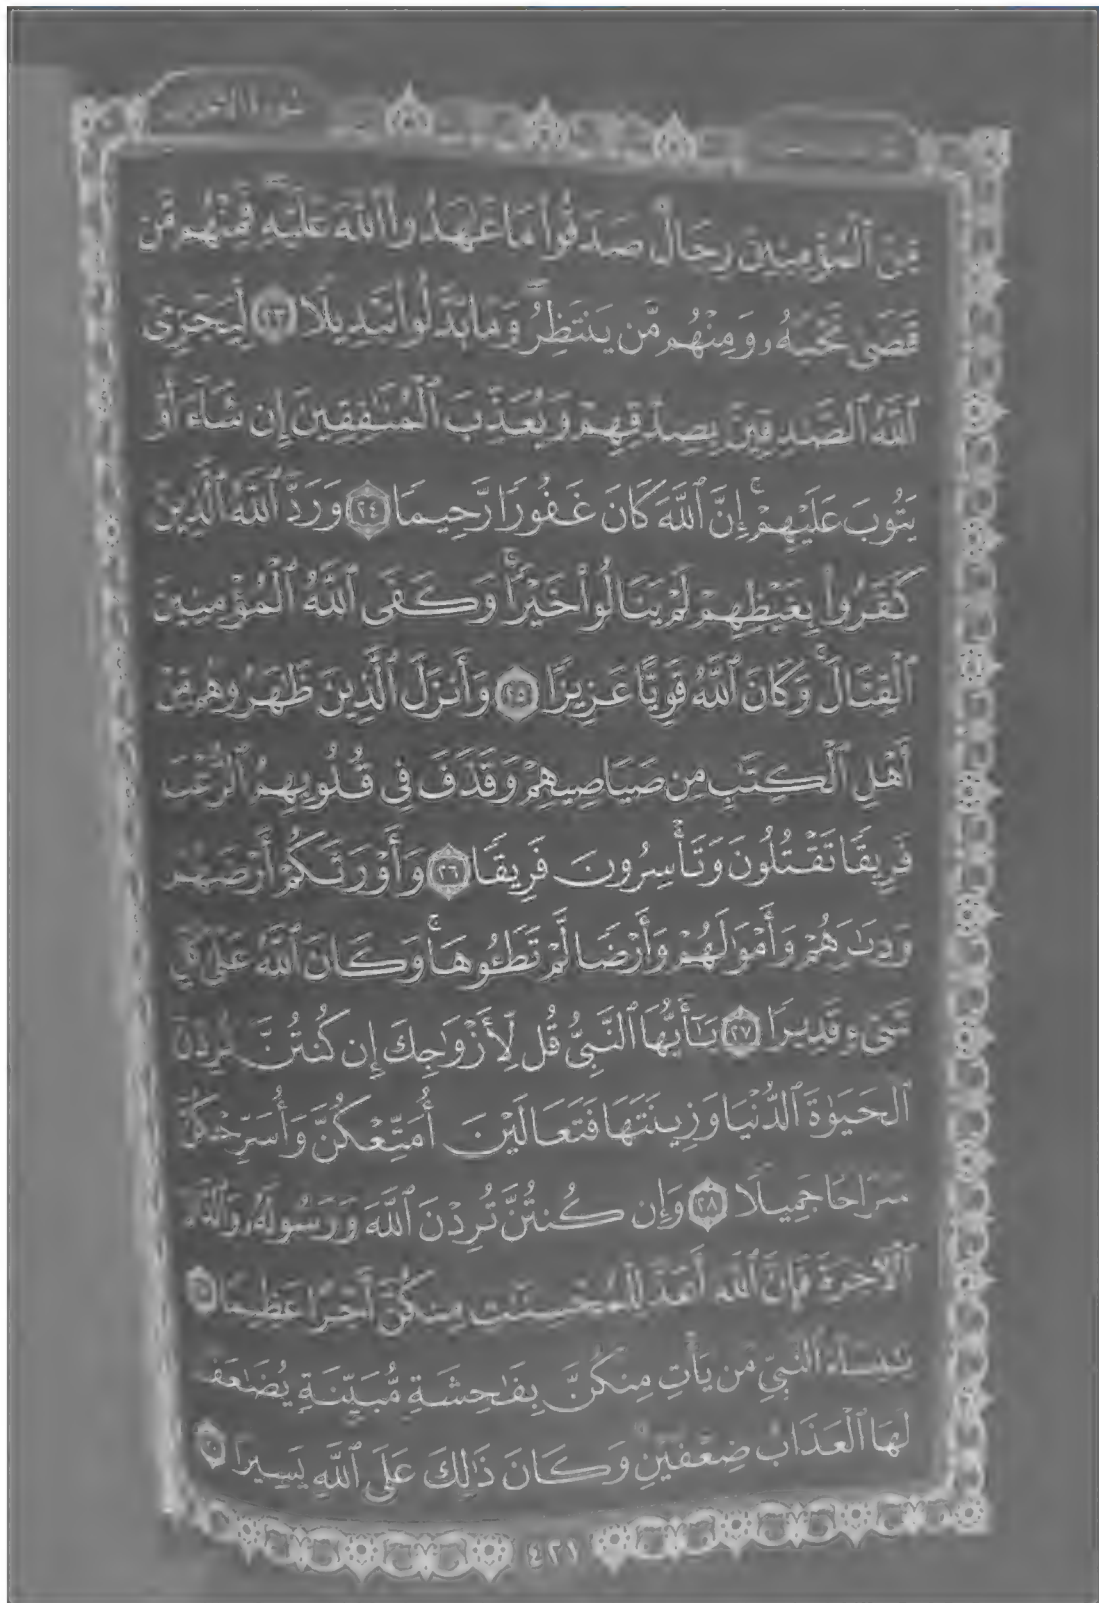 سورة الأحزاب
مِّنَ ٱلْمُؤْمِنِينَ رِجَالٌ صَدَقُوا۟ مَا عَٰهَدُوا۟ ٱللَّهَ عَلَيْهِ فَمِنْهُم مَّن
قَضَىٰ نَحْبَهُۥ وَمِنْهُم مَّن يَنتَظِرُ وَمَا بَدَّلُوا۟ تَبْدِيلًا ٢٣ لِّيَجْزِىَ
ٱللَّهُ ٱلصَّٰدِقِينَ بِصِدْقِهِمْ وَيُعَذِّبَ ٱلْمُنَٰفِقِينَ إِن شَآءَ أَوْ
يَتُوبَ عَلَيْهِمْ ۚ إِنَّ ٱللَّهَ كَانَ غَفُورًا رَّحِيمًا ٢٤ وَرَدَّ ٱللَّهُ ٱلَّذِينَ
كَفَرُوا۟ بِغَيْظِهِمْ لَمْ يَنَالُوا۟ خَيْرًا ۚ وَكَفَى ٱللَّهُ ٱلْمُؤْمِنِينَ
ٱلْقِتَالَ ۚ وَكَانَ ٱللَّهُ قَوِيًّا عَزِيزًا ٢٥ وَأَنزَلَ ٱلَّذِينَ ظَٰهَرُوهُم مِّنْ
أَهْلِ ٱلْكِتَٰبِ مِن صَيَاصِيهِمْ وَقَذَفَ فِى قُلُوبِهِمُ ٱلرُّعْبَ
فَرِيقًا تَقْتُلُونَ وَتَأْسِرُونَ فَرِيقًا ٢٦ وَأَوْرَثَكُمْ أَرْضَهُمْ
وَدِيَٰرَهُمْ وَأَمْوَٰلَهُمْ وَأَرْضًا لَّمْ تَطَـُٔوهَا ۚ وَكَانَ ٱللَّهُ عَلَىٰ كُلِّ
شَىْءٍ قَدِيرًا ٢٧ يَٰٓأَيُّهَا ٱلنَّبِىُّ قُل لِّأَزْوَٰجِكَ إِن كُنتُنَّ تُرِدْنَ
ٱلْحَيَوٰةَ ٱلدُّنْيَا وَزِينَتَهَا فَتَعَالَيْنَ أُمَتِّعْكُنَّ وَأُسَرِّحْكُنَّ
سَرَاحًا جَمِيلًا ٢٨ وَإِن كُنتُنَّ تُرِدْنَ ٱللَّهَ وَرَسُولَهُۥ وَٱلدَّارَ
ٱلْءَاخِرَةَ فَإِنَّ ٱللَّهَ أَعَدَّ لِلْمُحْسِنَٰتِ مِنكُنَّ أَجْرًا عَظِيمًا ٢٩
يَٰنِسَآءَ ٱلنَّبِىِّ مَن يَأْتِ مِنكُنَّ بِفَٰحِشَةٍ مُّبَيِّنَةٍ يُضَٰعَفْ
لَهَا ٱلْعَذَابُ ضِعْفَيْنِ ۚ وَكَانَ ذَٰلِكَ عَلَى ٱللَّهِ يَسِيرًا ٣٠
٤٢١